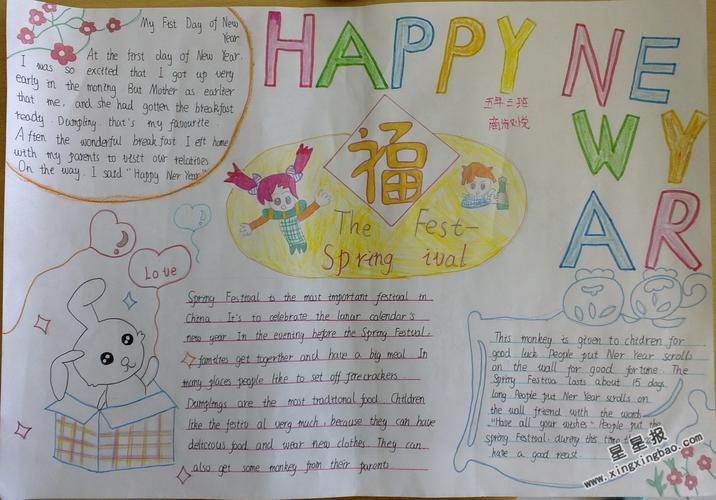 My Fist Day of New
Year
At the first day of New Year.
I was so excited that I got up very
early in the moning But Mother as earlier
that me, and she had gotten the breakfast
ready. Dumpling that's my favourite.
After the wonderful breakfast I left home
with my parents to visit our relatives
On the way. I said "Happy Ner Year"
HAPPY NEW YEAR
WY
AR
五年三班
福
The Fest-
Spring ival
Love
Spring Festival is the most important festival in
China It's to celebrate the lunar calendar's
new year In the evening before the Spring Festival,
families get together and have a big meal In
many places people like to set off firecrackers
Dumplings are the most traditional food Children
like the festiv al very much, because they can have
delicious food and wear new clothes They can
also get some monkey from their parents
This monkey is given to children for
good luck People put Ner Year scrolls
on the wall for good fortune The
Spring Festiva lasts about 15 days
long People put Ner Year scrolls on
the wall friend with the words
"Have all your wishes" People put the
spring Festival during this time
have a good reast
星星报
www.xingxingbao.com